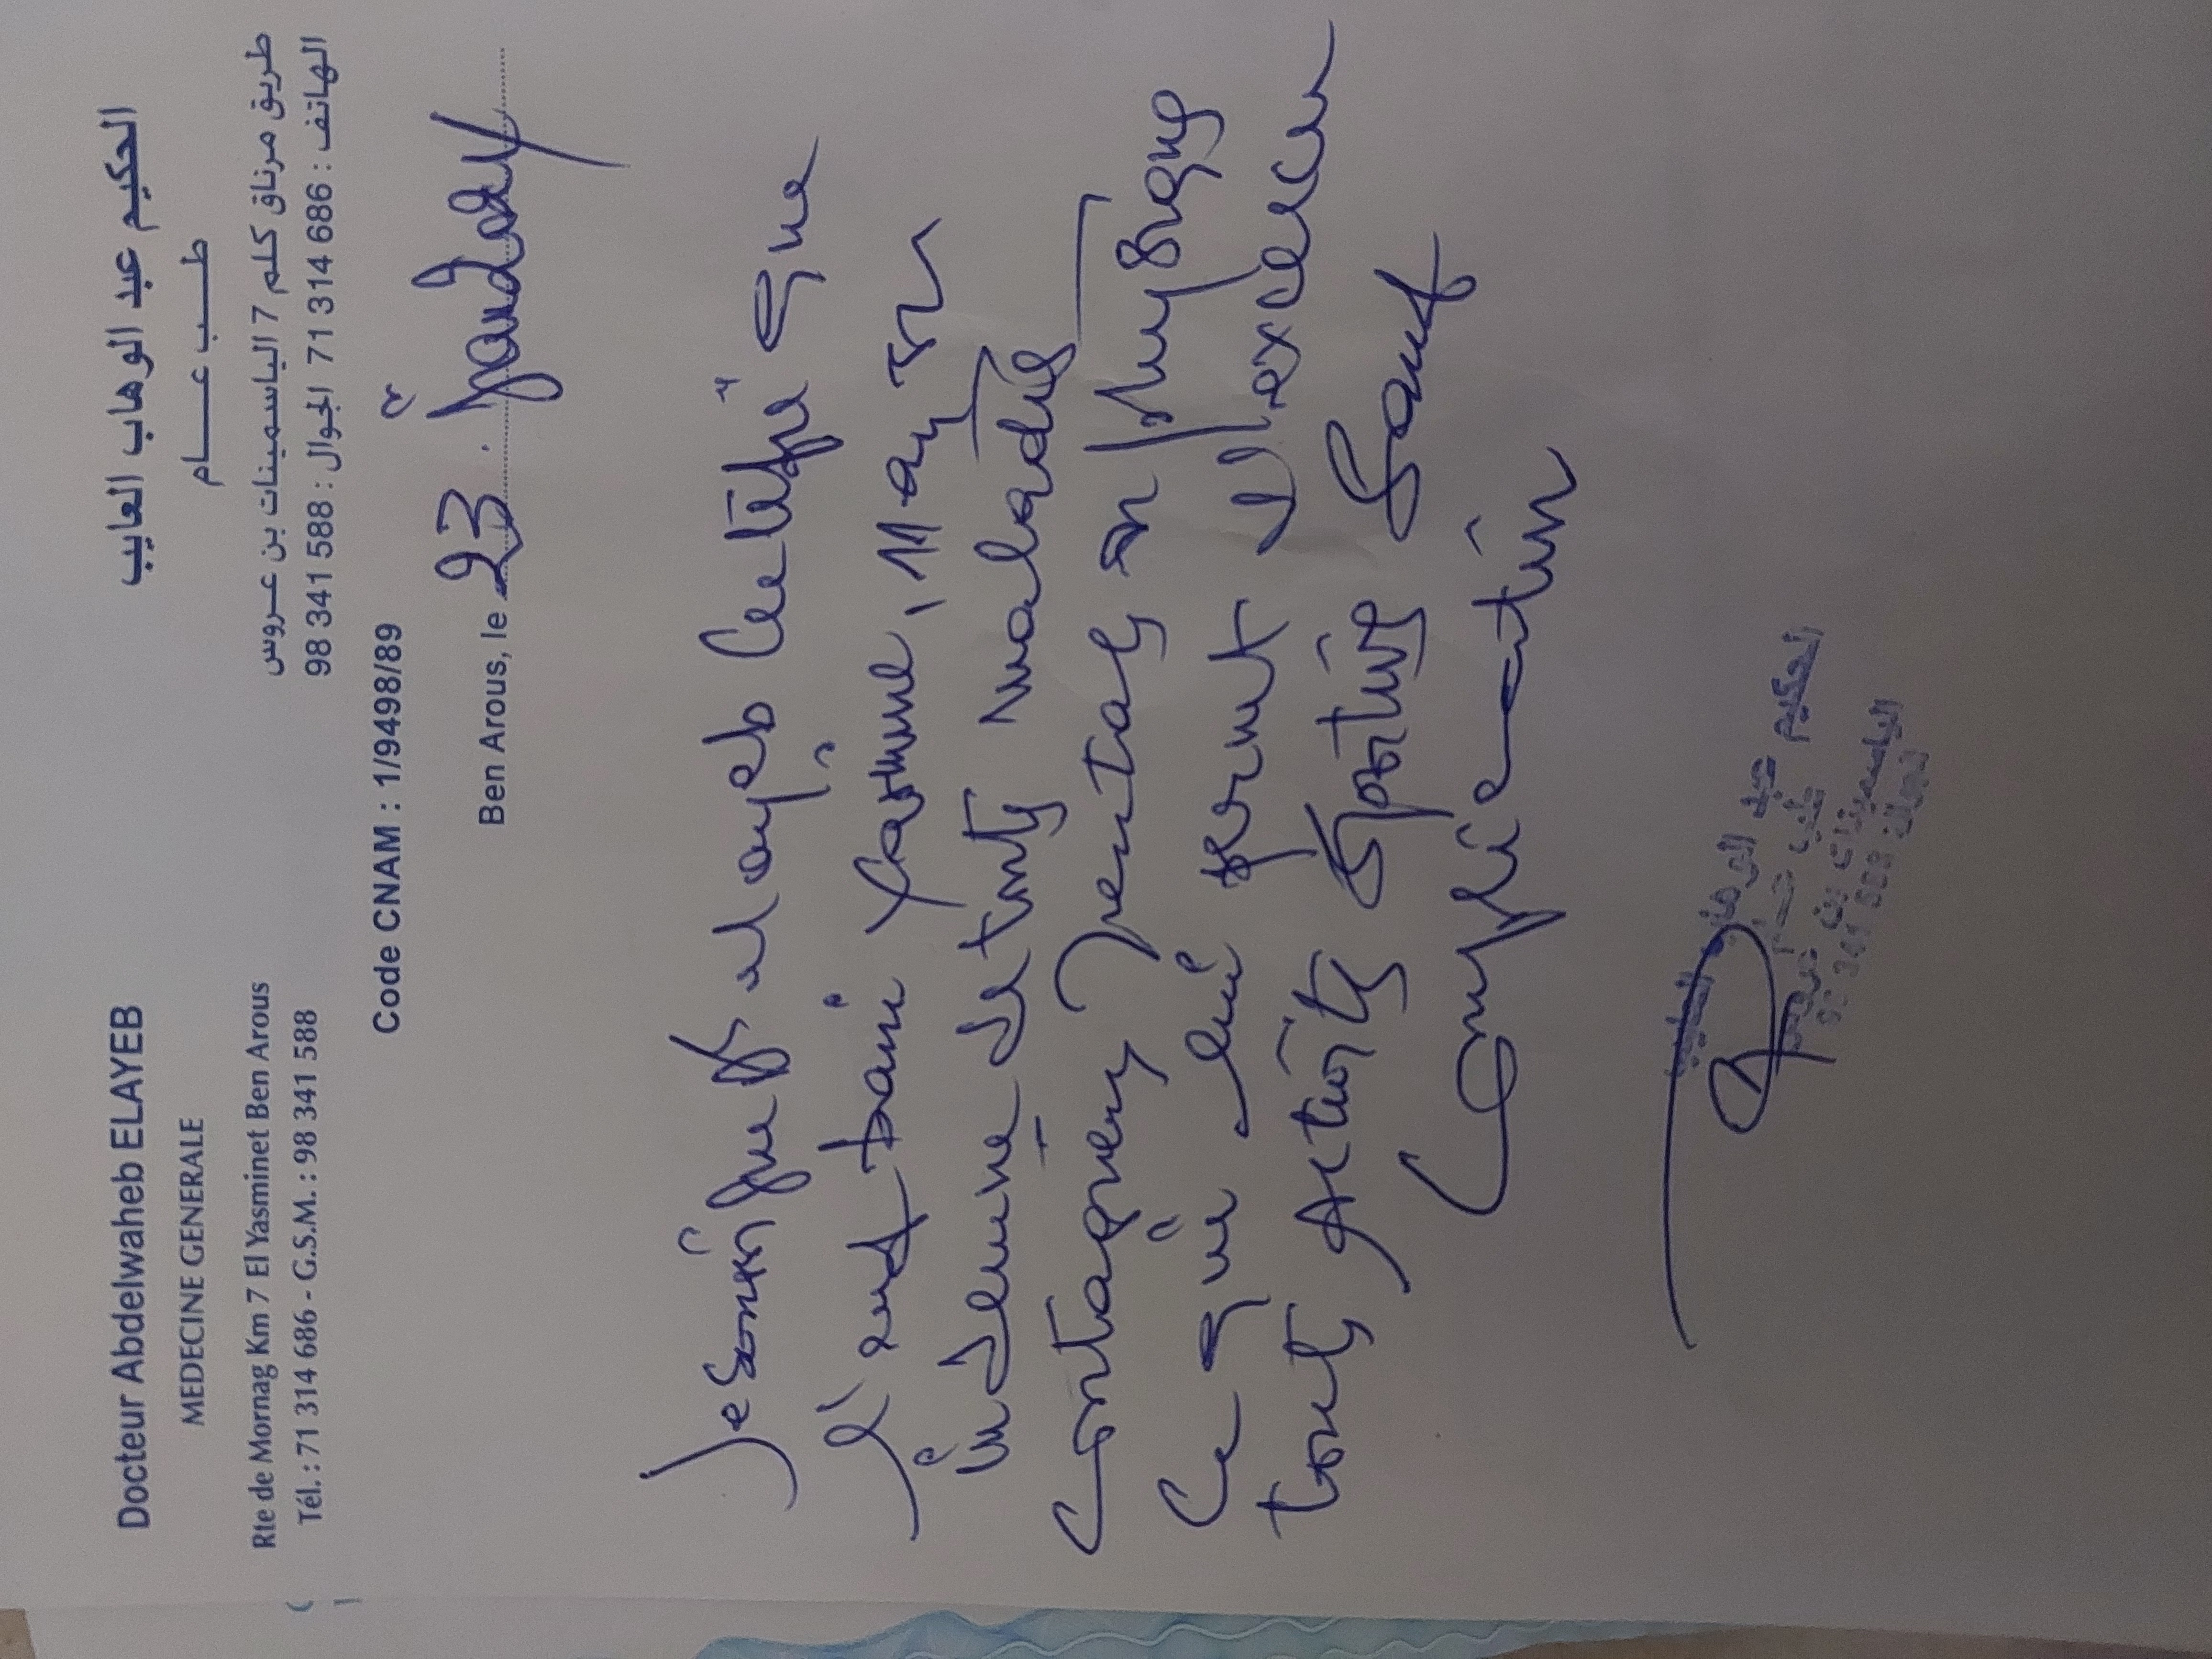 Docteur Abdelwaheb ELAYEB
MEDECINE GENERALE
Rte de Mornag Km 7 El Yasminet Ben Arous
Tél. : 71 314 686 - G.S.M. : 98 341 588
الحكيم عبد الوهاب العايب
طب عام
طريق مرناق كلم 7 الياسمينات بن عروس
الهاتف : 686 314 71 الجوال : 588 341 98
Code CNAM : 1/9498/89
Ben Arous, le 23
Je soussigné Dr elayeb certifie que
l'enf Yasmine, 11 ans est
indemne de toute maladie
contagieuse mentale ou physique
ce qui lui permet d'exercer
toute activité sportive sauf
complication
الحكيم عبد الوهاب العايب
طب عام
الياسمينات بن عروس
الجوال 588 341 98